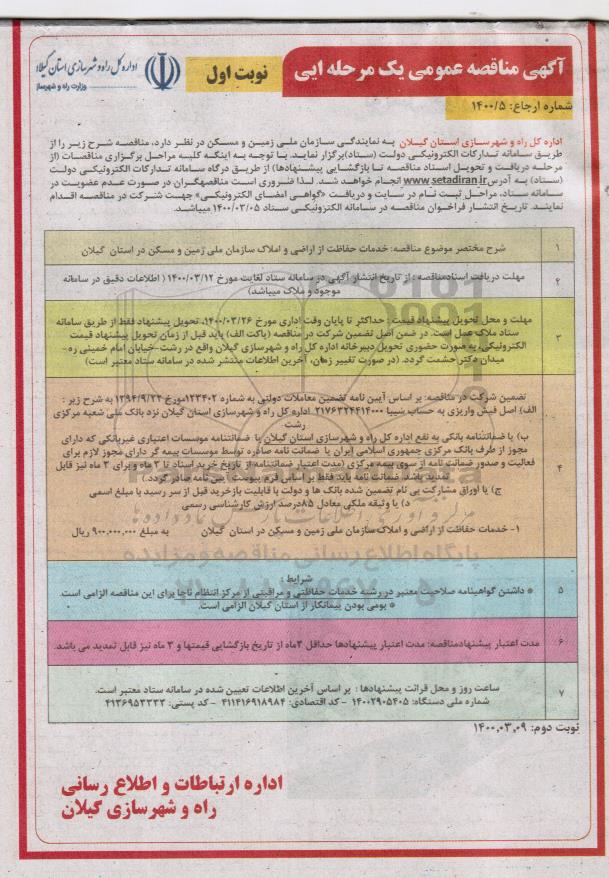 آگهی مناقصه عمومی یک مرحله ایی
نوبت اول
اداره کل راه و شهرسازی استان گیلان
وزارت راه و شهرساز
شماره ارجاع: ۱۴۰۰/۵
اداره کل راه و شهرسازی استان گیلان به نمایندگی سازمان ملی زمین و مسکن در نظر دارد، مناقصه شرح زیر را از
طریق سامانه تدارکات الکترونیکی دولت (ستاد)برگزار نماید. با توجه به اینکه کلیه مراحل برگزاری مناقصات (از
مرحله دریافت و تحویل اسناد مناقصه تا بازگشایی پیشنهادها) از طریق درگاه سامانه تدارکات الکترونیکی دولت
(ستاد) به آدرس www.setadiran.ir انجام خواهد شد. لذا ضروری است مناقصهگران در صورت عدم عضویت در
سامانه ستاد، مراحل ثبت نام در سایت و دریافت «گواهی امضای الکترونیکی» جهت شرکت در مناقصه اقدام
نمایند. تاریخ انتشار فراخوان مناقصه در سامانه الکترونیکی ستاد ۱۴۰۰/۰۳/۰۵ میباشد.
۱ شرح مختصر موضوع مناقصه: خدمات حفاظت از اراضی و املاک سازمان ملی زمین و مسکن در استان گیلان
۲ مهلت دریافت اسنادمناقصه : از تاریخ انتشار آگهی در سامانه ستاد لغایت مورخ ۱۴۰۰/۰۳/۱۲ ( اطلاعات دقیق در سامانه
موجود و ملاک میباشد)
مهلت و محل تحویل پیشنهاد قیمت : حداکثر تا پایان وقت اداری مورخ ۱۴۰۰/۰۳/۲۶، تحویل پیشنهاد فقط از طریق سامانه
ستاد ملاک عمل است. در ضمن اصل تضمین شرکت در مناقصه (پاکت الف) باید قبل از زمان تحویل پیشنهاد قیمت
۳ الکترونیکی، به صورت حضوری تحویل دبیرخانه اداره کل راه و شهرسازی گیلان واقع در رشت-خیابان امام خمینی ره-
میدان دکتر حشمت گردد. (در صورت تغییر زمان، آخرین اطلاعات منتشر شده در سامانه ستاد معتبر است)
تضمین شرکت در مناقصه: بر اساس آیین نامه تضمین معاملات دولتی به شماره ۱۲۳۴۰۲مورخ ۱۳۹۴/۹/۲۲ به شرح زیر :
الف) اصل فیش واریزی به حساب سیبا ۲۱۷۶۳۲۴۴۱۴۰۰۰ اداره کل راه و شهرسازی استان گیلان نزد بانک ملی شعبه مرکزی
رشت
ب) یا ضمانتنامه بانکی به نفع اداره کل راه و شهرسازی استان گیلان یا ضمانتنامه موسسات اعتباری غیربانکی که دارای
مجوز از طرف بانک مرکزی جمهوری اسلامی ایران یا ضمانت نامه صادره توسط موسسات بیمه گر دارای مجوز لازم برای
۴ فعالیت و صدور ضمانت نامه از سوی بیمه مرکزی (مدت اعتبار ضمانتنامه از تاریخ خرید اسناد تا ۳ ماه و برای ۳ ماه نیز قابل
تمدید باشد. ضمانت نامه باید فقط بر اساس فرم پیوست آیین نامه صادر گردد.)
ج) یا اوراق مشارکت بی نام تضمین شده بانک ها و دولت با قابلیت بازخرید قبل از سر رسید با مبلغ اسمی
د) یا وثیقه ملکی معادل ۸۵درصد ارزش کارشناسی رسمی
۱- خدمات حفاظت از اراضی و املاک سازمان ملی زمین و مسکن در استان گیلان به مبلغ ۹۰۰,۰۰۰,۰۰۰ ریال
شرایط :
۵ * داشتن گواهینامه صلاحیت معتبر در رشته خدمات حفاظتی و مراقبتی از مرکز انتظام ناجا برای این مناقصه الزامی است.
* بومی بودن پیمانکار از استان گیلان الزامی است.
۶ مدت اعتبار پیشنهادمناقصه: مدت اعتبار پیشنهادها حداقل ۳ماه از تاریخ بازگشایی قیمتها و ۳ ماه نیز قابل تمدید می باشد.
۷ ساعت روز و محل قرائت پیشنهادها : بر اساس آخرین اطلاعات تعیین شده در سامانه ستاد معتبر است.
شماره ملی دستگاه: ۱۴۰۰۲۹۰۵۴۰۵ - کد اقتصادی: ۴۱۱۴۱۶۹۱۸۹۸۴ - کد پستی: ۴۱۳۶۹۵۳۳۳۳
نوبت دوم: ۱۴۰۰,۰۳,۰۹
اداره ارتباطات و اطلاع رسانی
راه و شهرسازی گیلان